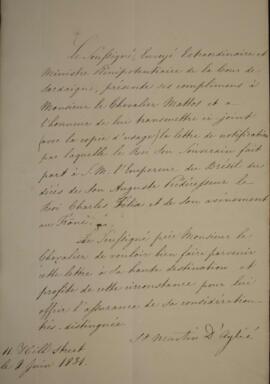 Le Soussigné, Envoyé Extraordinaire et
Ministre Plénipotentiaire de la Cour de
Sardaigne, présente ses complimens à
Monsieur le Chevalier Mattos et a
l'honneur de lui transmettre ci joint
(avec la copie d'usage) la lettre de notification
par laquelle le Roi Son Souverain fait
part à S. M. l'Empereur du Brésil du
décès de Son Auguste Prédécesseur le
Roi Charles Félix et de son avènement
au Trône.
Le Soussigné prie Monsieur le
Chevalier de vouloir bien faire parvenir
cette lettre à sa haute destination et
profite de cette circonstance pour lui
offrir l'assurance de sa considération
très distinguée.
St Martin D'Aglié
11 Hill Street
le 9 Juin 1831.